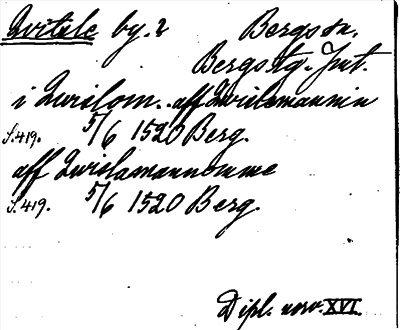 Qvitsle by. 2 Bergs sn.
Bergs tg. Jmt.
i Quislom. aff Quislamannin
S. 419. 5/6 1520 Berg.
aff Quislamannomme
S. 419. 5/6 1520 Berg.
Dipl. norv. XVI.